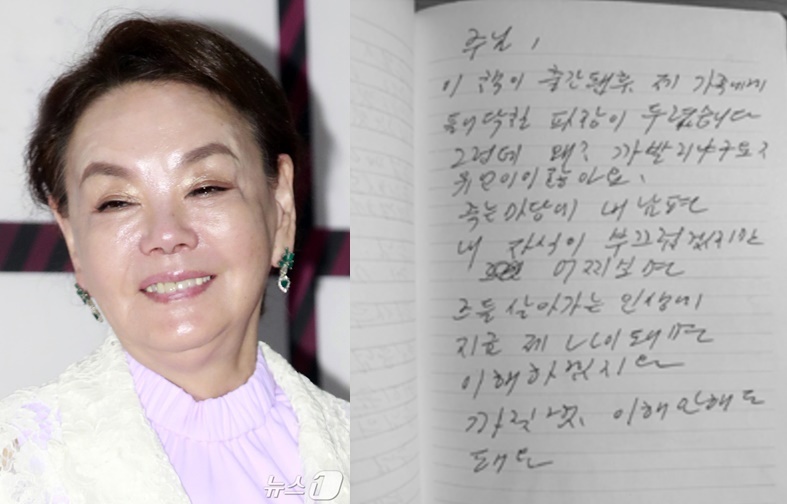 주님,
이 책이 출간됐후, 제 가족에게
들어닥칠 파장이 두렵습니다
그런데 왜? 까발리냐구요?
이 많아요.
죽는 마당에 내 남편
내 자식이 부끄럽겠지만
어찌보면
그들 살아가는 인생에
지금 제 나이 돼면
이해하겠지 다
까짓껏, 이해 안해도
돼 다
뉴스1